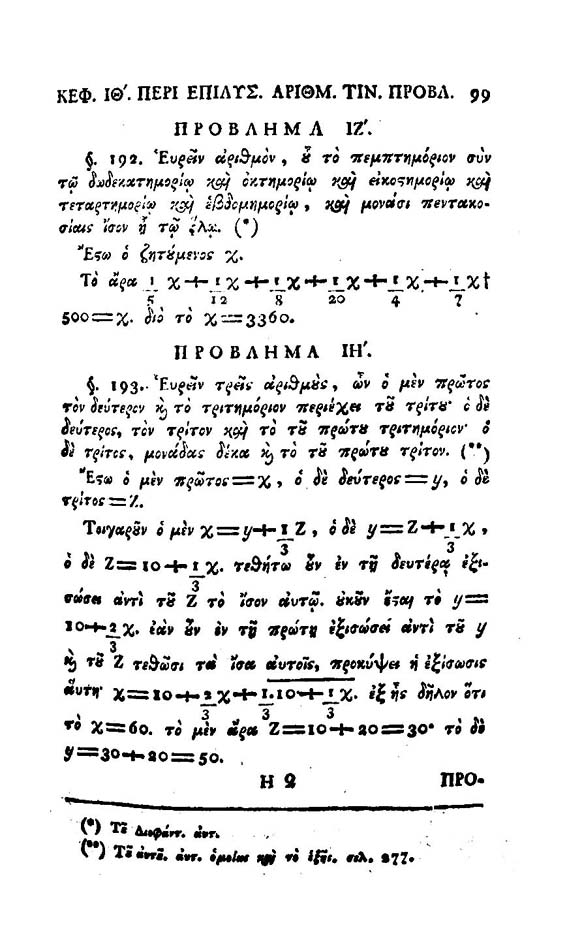 ΚΕΦ. ΙΘ΄. ΠΕΡΙ ΕΠΙΛΥΣ. ΑΡΙΘΜ. ΤΙΝ. ΠΡΟΒΛ. 99
ΠΡΟΒΛΗΜΑ ΙΖ΄.
§. 192. Ἑυρεῖν ἀριθμὸν, ȣ̃ τὸ πεμπτημόριον σὺν
τῷ δωδεκατημορίῳ καὶ ὀκτημορίῳ καὶ εἰκοϛημορίῳ καὶ
τεταρτημορίῳ καὶ ἑβδομημορίῳ, καὶ μονάσι πεντακο-
σίαις ἴσον ᾖ τῷ ὅλῳ. (*)
Ἔϛω ὁ ζητȣ́μενος χ.
Τὸ ἄρα 1 χ + 1 χ + 1 χ + 1 χ + 1 χ + 1 χ †
5 12 8 20 4 7
500=χ. διὸ τὸ χ=3360.
ΠΡΟΒΛΗΜΑ ΙΗ΄.
§. 193. Ἑυρεῖν τρεῖς ἀριθμȣ̀ς, ὧν ὁ μὲν πρῶτος
τὸν δεύτερον ϗ̀ τὸ τριτημόριον περιέχει τȣ̃ τρίτȣ· ὁ δὲ
δεύτερος, τὸν τρίτον καὶ τὸ τȣ̃ πρώτȣ τριτημόριον· ὁ
δὲ τρίτος, μονάδας δέκα ϗ̀ τὸ τȣ̃ πρώτȣ τρίτον. (**)
Ἔϛω ὁ μὲν πρῶτος=χ, ὁ δὲ δεύτερος=y, ὁ δὲ
τρίτος=Z.
Τοιγαρȣ̃ν ὁ μὲν χ=y+1 Z, ὁ δὲ y=Z+1 χ,
3 3
ὁ δὲ Z=10+1 χ. τεθήτω ȣ̃ν ἐν τῇ δευτέρᾳ ἐξι-
3
σώσει ἀντὶ τȣ̃ Z τὸ ἴσον αυτῷ. ȣκȣ̃ν ἔϛαι τὸ y=
10+2 χ. ἐὰν ȣ̃ν ἐν τῇ πρώτῃ ἐξισώσει ἀντὶ τȣ̃ y
3
ϗ̀ τȣ̃ Z τεθῶσι τὰ ἴσα ἀυτοῖς, προκύψει ἡ ἐξίσωσις
ἅυτη· χ=10+2 χ+1.10+1 χ. ἐξ ἧς δῆλον ὅτι
3 3 3
τὸ χ=60. τὸ μὲν ἄρα Z=10+20=30· τὸ δὲ
y=30+20=50.
Η 2 ΠΡΟ-
(*) Τȣ̃ Διοφάντ. ἀντ.
(**) Τȣ̃ ἀυτȣ̃. ἀντ. ὁμοίως καὶ τὸ ἑξῆς. σελ. 277.